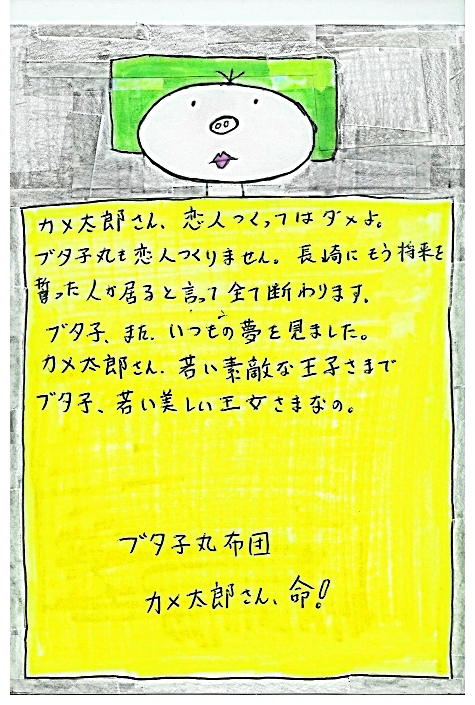 カメ太郎さん、恋人つくってはダメよ。
ブタ子丸も恋人つくりません。長崎にもう将来を
誓った人が居ると言って全て断わります。
ブタ子、また、いつもの夢を見ました。
カメ太郎さん、若い素敵な王子さまで
ブタ子、若い美しい王女さまなの。
ブタ子丸布団
カメ太郎さん、命!